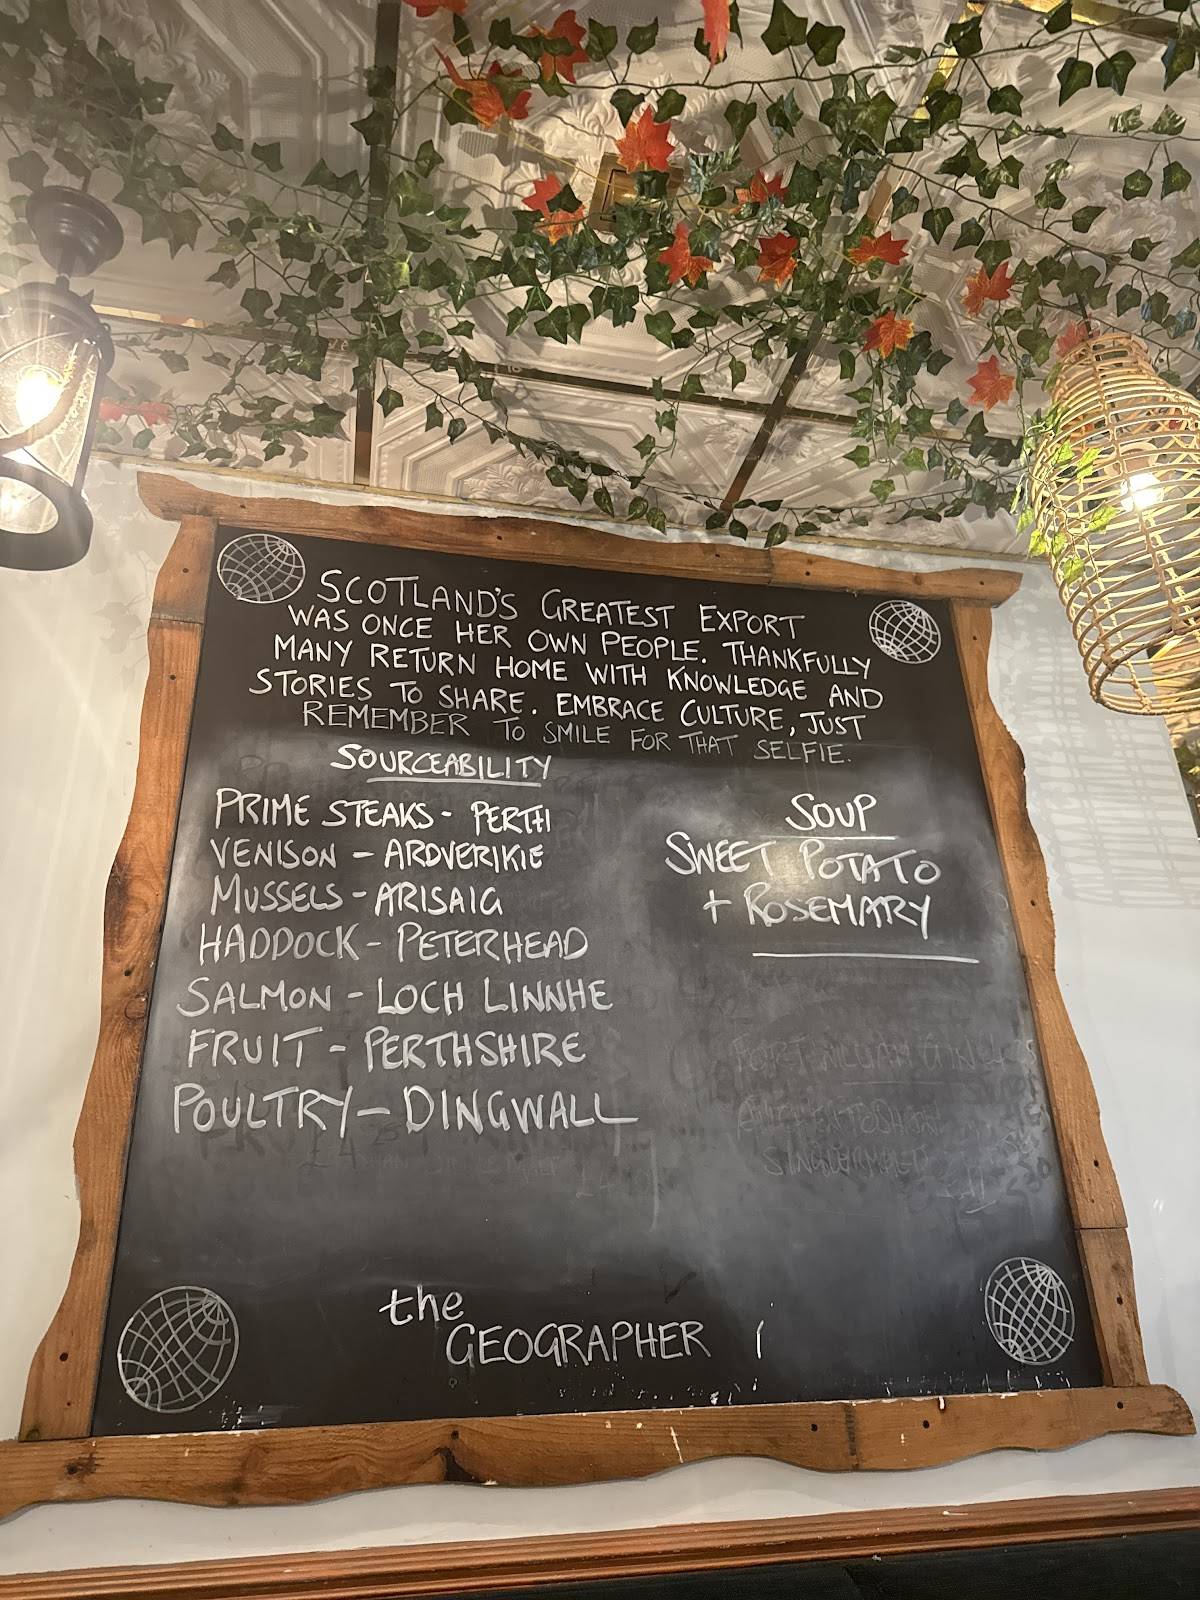 SCOTLAND'S GREATEST EXPORT
WAS ONCE HER OWN PEOPLE. THANKFULLY
MANY RETURN HOME WITH KNOWLEDGE AND
STORIES TO SHARE. EMBRACE CULTURE, JUST
REMEMBER TO SMILE FOR THAT SELFIE.
SOURCEABILITY
PRIME STEAKS - PERTH
VENISON - ARDVERIKIE
MUSSELS - ARISAIG
HADDOCK - PETERHEAD
SALMON - LOCH LINNHE
FRUIT - PERTHSHIRE
POULTRY - DINGWALL
SOUP
SWEET POTATO
+ ROSEMARY
FORT WILLIAM
the
GEOGRAPHER